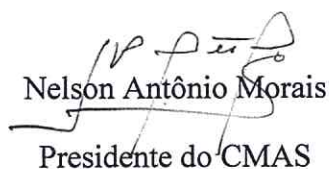 Nelson Antônio Morais
Presidente do CMAS